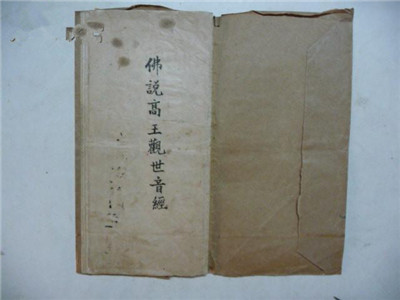 佛說高王觀世音經